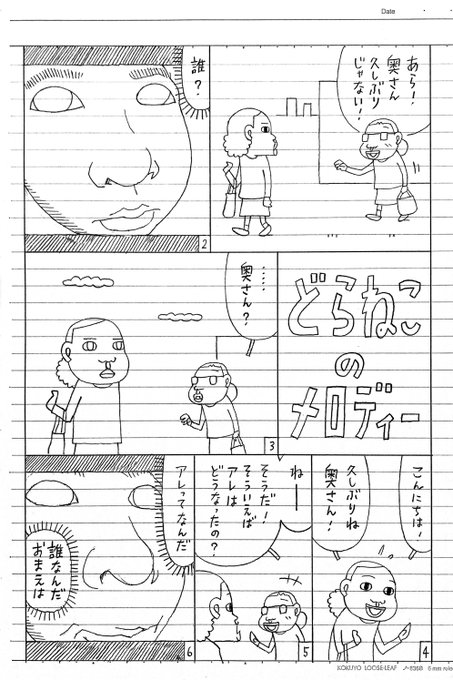 Date
あらー!
奥さん
久しぶり
じゃない!
誰?
2
どらねこ
の
メロディー
……
奥さん?
3
こんにちは!
久しぶりね
奥さん!
4
ねー
そうだ!
そういえば
アレは
どうなったの?
5
アレってなんだ
誰なんだ
おまえは
6
KOKUYO LOOSE-LEAF